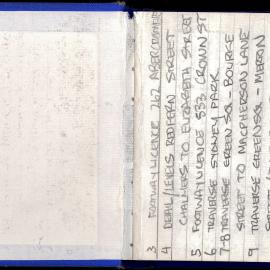 3 FOOTWAY LICENCE 262 ABERCROMBIE
4 DETAIL/LEVELS REDFERN STREET
CHALMERS TO ELIZABETH STREET
5 FOOTWAY LICENCE 533 CROWN ST
6 TRAVERSE SYDNEY PARK
7-8 TRAVERSE GREEN SQ - BOURKE
STREET TO MACPHERSON LANE
9 TRAVERSE GREEN SQ - MERTON